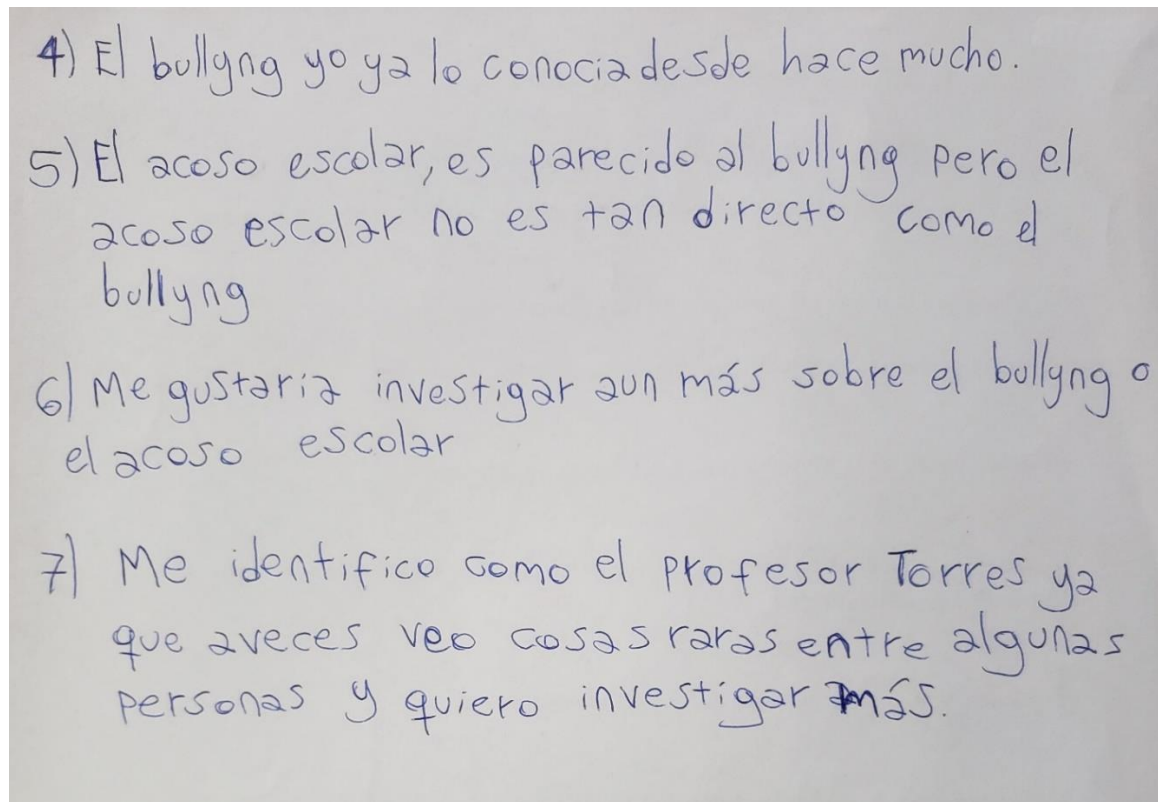 4) El bullyng yo ya lo conocia desde hace mucho.
5) El acoso escolar, es parecido al bullyng pero el
acoso escolar no es tan directo como el
bullyng
6) Me gustaria investigar aun más sobre el bullyng o
el acoso escolar
7) Me identifico como el profesor Torres ya
que aveces veo cosas raras entre algunas
personas y quiero investigar más.